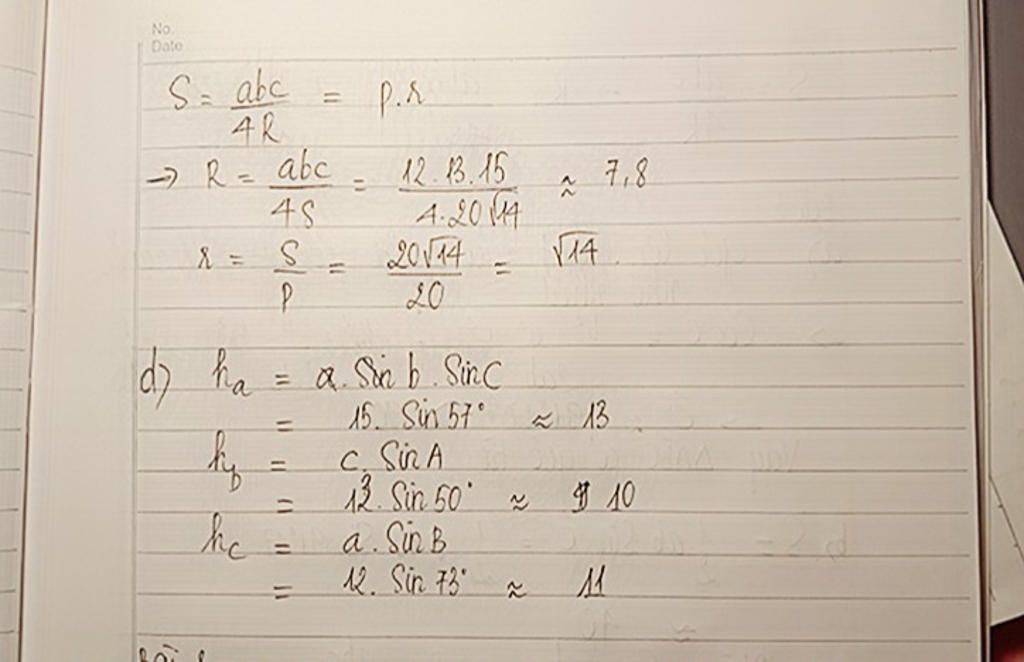 No.
Date
S = abc/4R = p.r
→ R = abc/4S = 12.13.15/4.20√14 ≈ 7,8
r = S/p = 20√14/20 = √14.
d) ha = a. Sin b . Sin C
= 15. Sin 57° ≈ 13
hb = c. Sin A
= 13. Sin 50° ≈ 10
hc = a. Sin B
= 12. Sin 73° ≈ 11